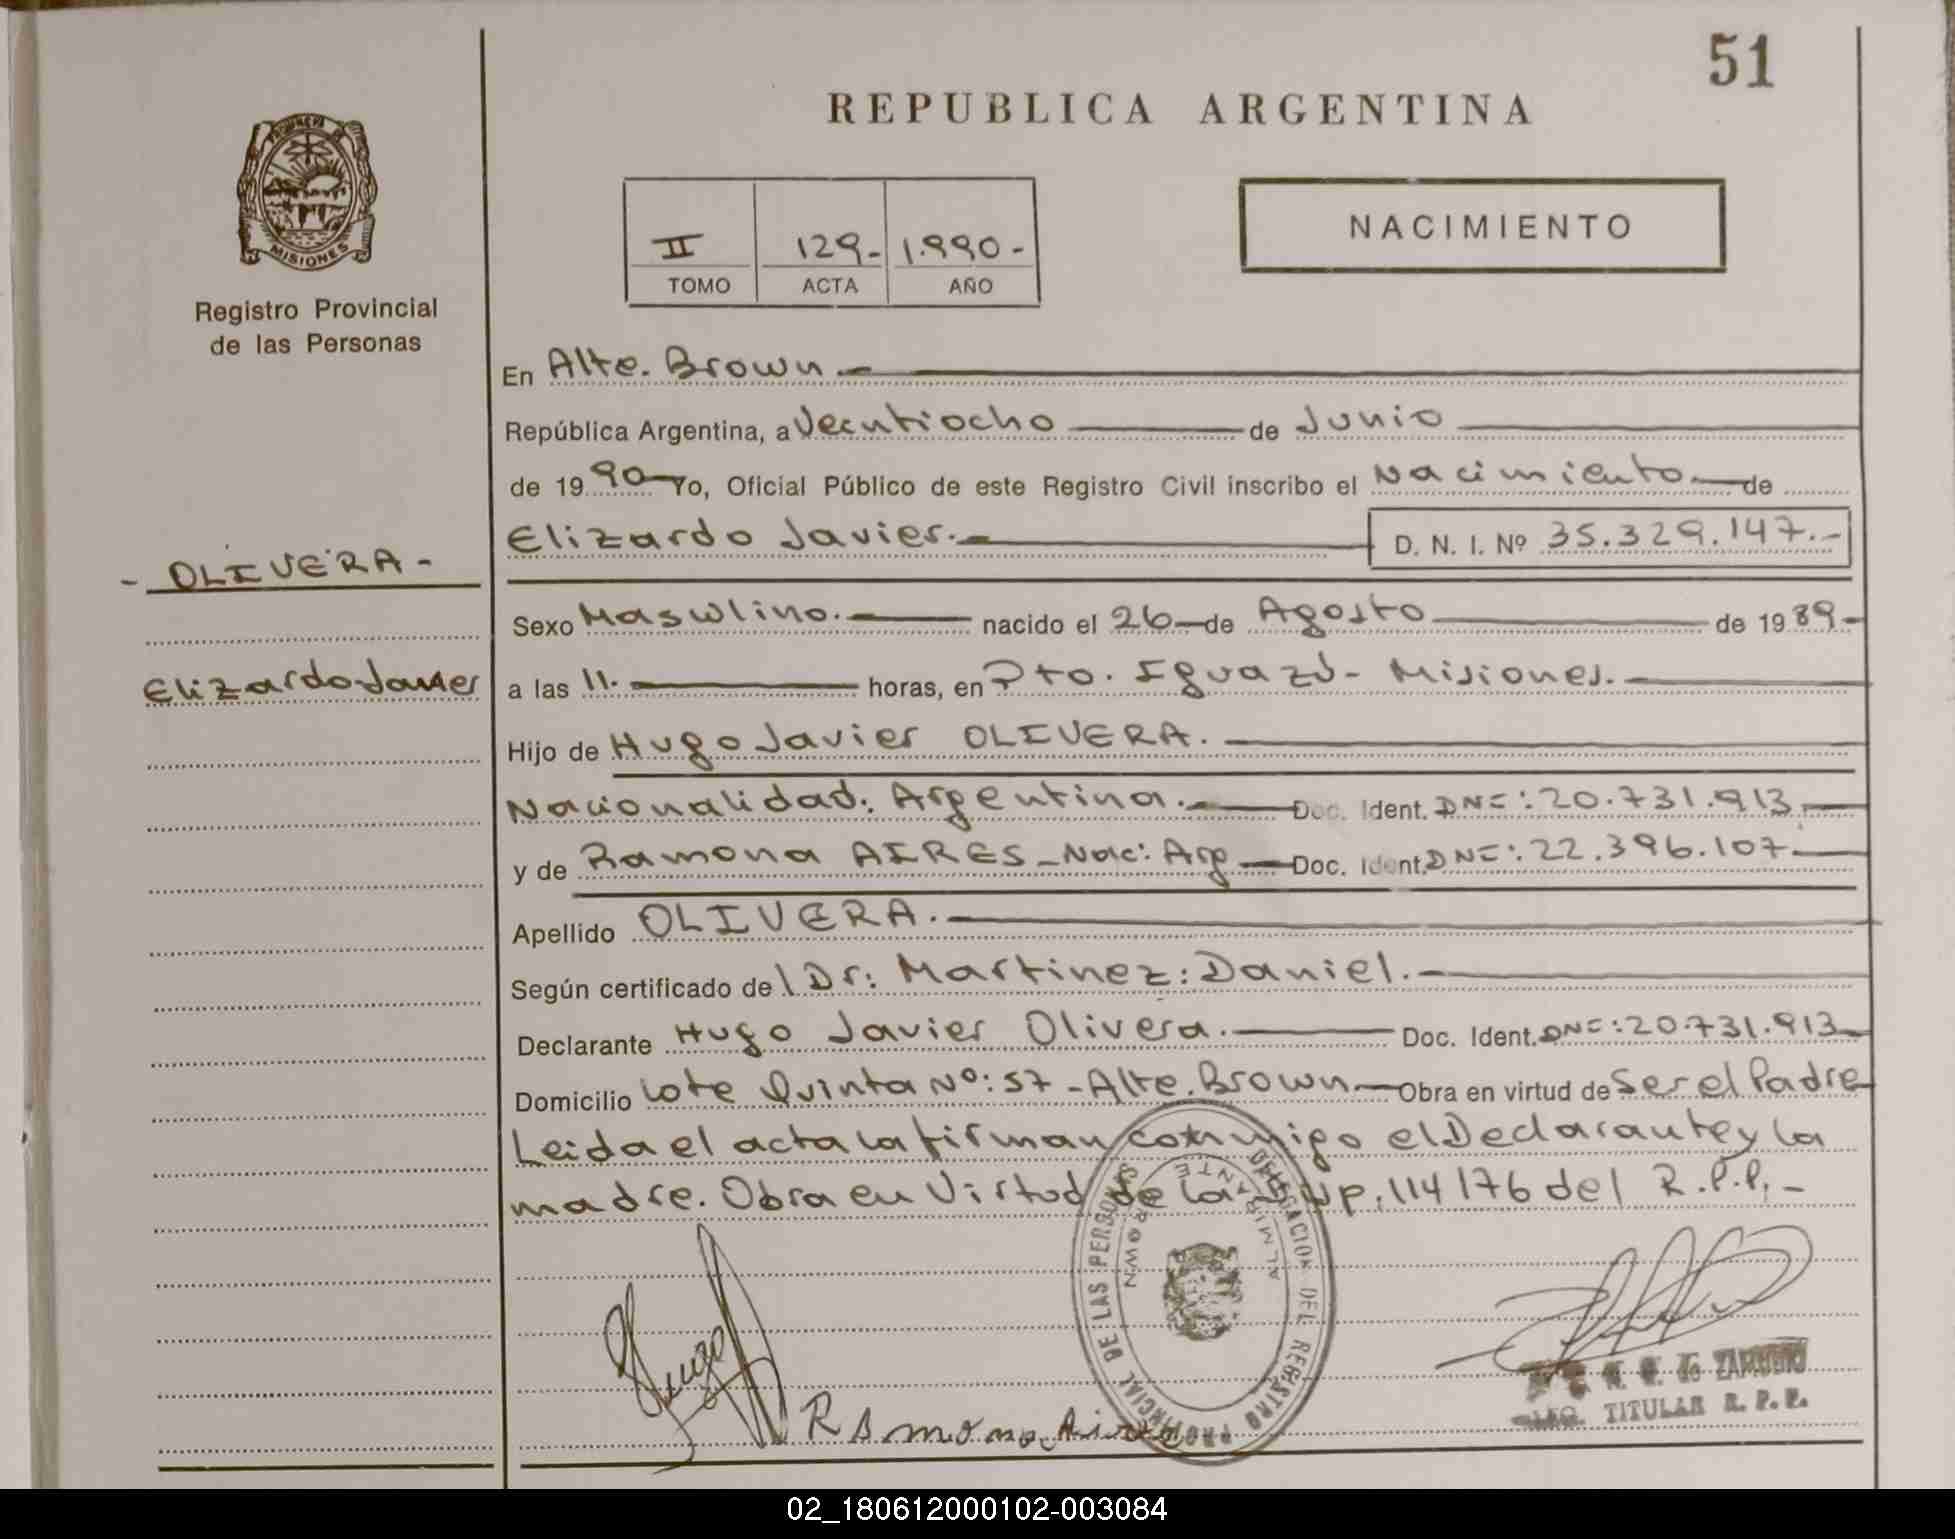 51
REPUBLICA ARGENTINA
PROVINCIA DE
MISIONES
Registro Provincial
de las Personas
II 129- 1.990-
TOMO ACTA AÑO
NACIMIENTO
En Alte. Brown.-
República Argentina, a Veintiocho de Junio
de 1990 Yo, Oficial Público de este Registro Civil inscribo el Nacimiento de
Elizardo Javier.- D. N. I. Nº 35.329.147.-
- OLIVERA -
Elizardo Javier
Sexo Masculino.- nacido el 26 de Agosto de 1989-
a las 11. horas, en Pto. Iguazú- Misiones.-
Hijo de Hugo Javier OLIVERA.
Nacionalidad: Argentina.- Doc. Ident. DNI: 20.731.913.-
y de Ramona AIRES-Nac: Arg Doc. Ident. DNI: 22.396.107.-
Apellido OLIVERA.-
Según certificado del Dr: Martinez: Daniel.-
Declarante Hugo Javier Olivera.- Doc. Ident. DNI: 20.731.913
Domicilio Lote Quinta Nº: 57 - Alte. Brown.- Obra en virtud de Ser el Padre
Leida el acta la firman conmigo el Declarante y la
madre. Obra en Virtud de la 114/76 del R.P.P.-
DELEGACION DEL REGISTRO PROVINCIAL DE LAS PERSONAS
ALMIRANTE BROWN
Hugo
Ramona Aires
TITULAR R. P. P.
02_180612000102-003084